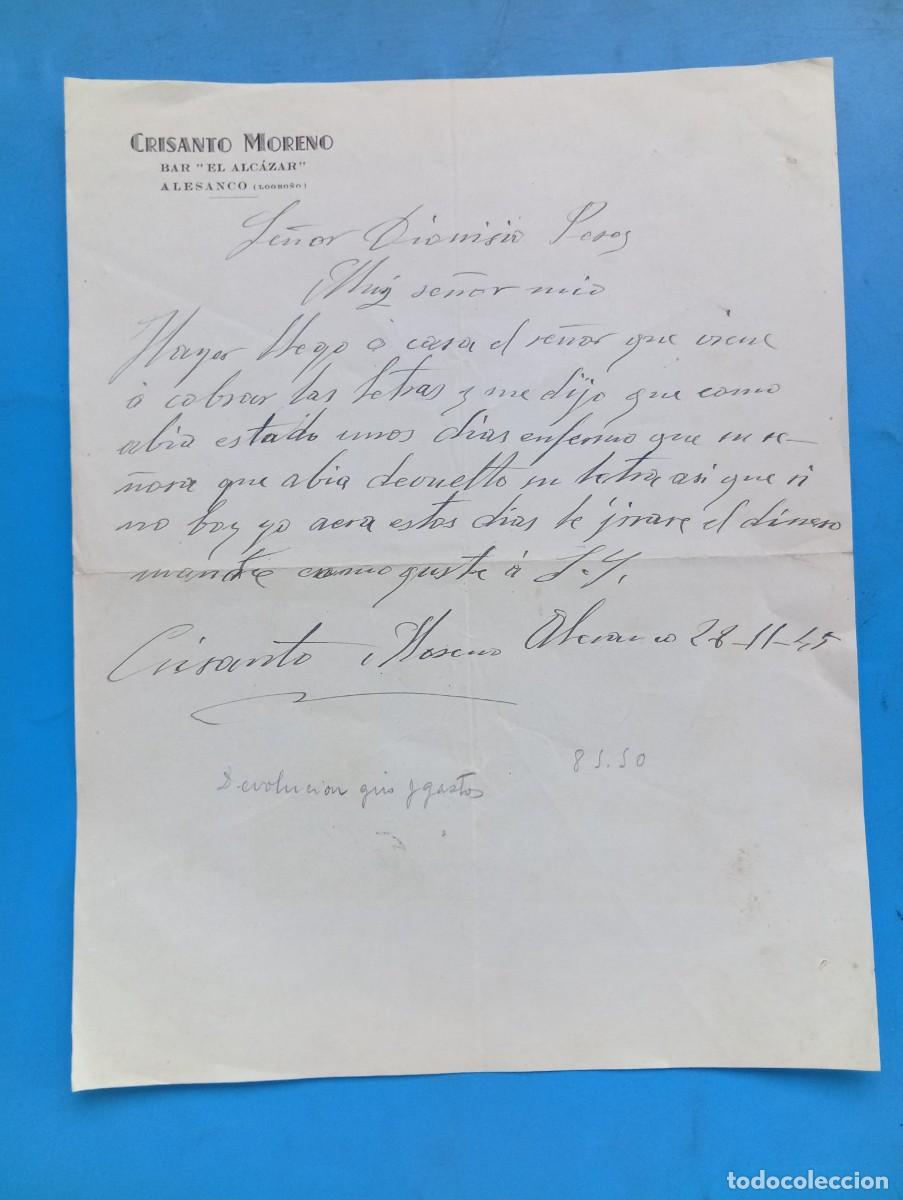 CRISANTO MORENO
BAR "EL ALCÁZAR"
ALESANCO (LOGROÑO)
Señor Dionisio Peres
Muy señor mio
Hayer llego á casa el señor que viene
á cobrar las letras y me dijo que como
abia estado unos dias enfermo que su se-
ñora que abia devuelto su letra asi que si
no boy yo aera estos dias le jirare el dinero
mande como guste á S.S.
Crisanto Moreno Alesanco 28-11-45
85.50
Devolucion giro y gastos
todocoleccion